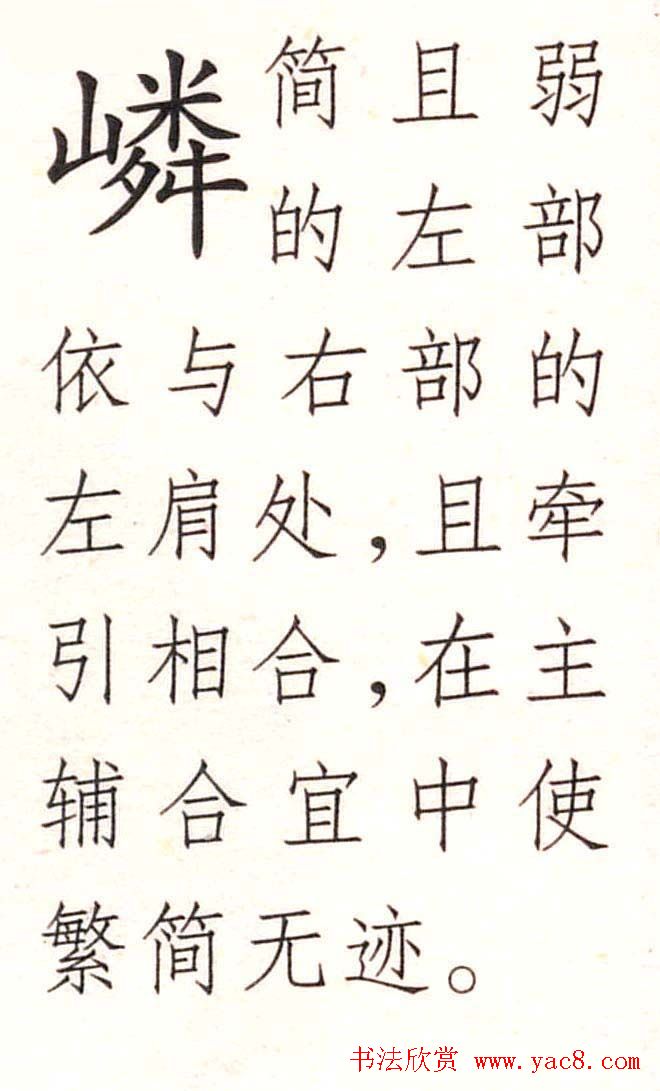 嶙
简且弱
的左部
依与右部的
左肩处，且牵
引相合，在主
辅合宜中使
繁简无迹。
书法欣赏 www.yac8.com